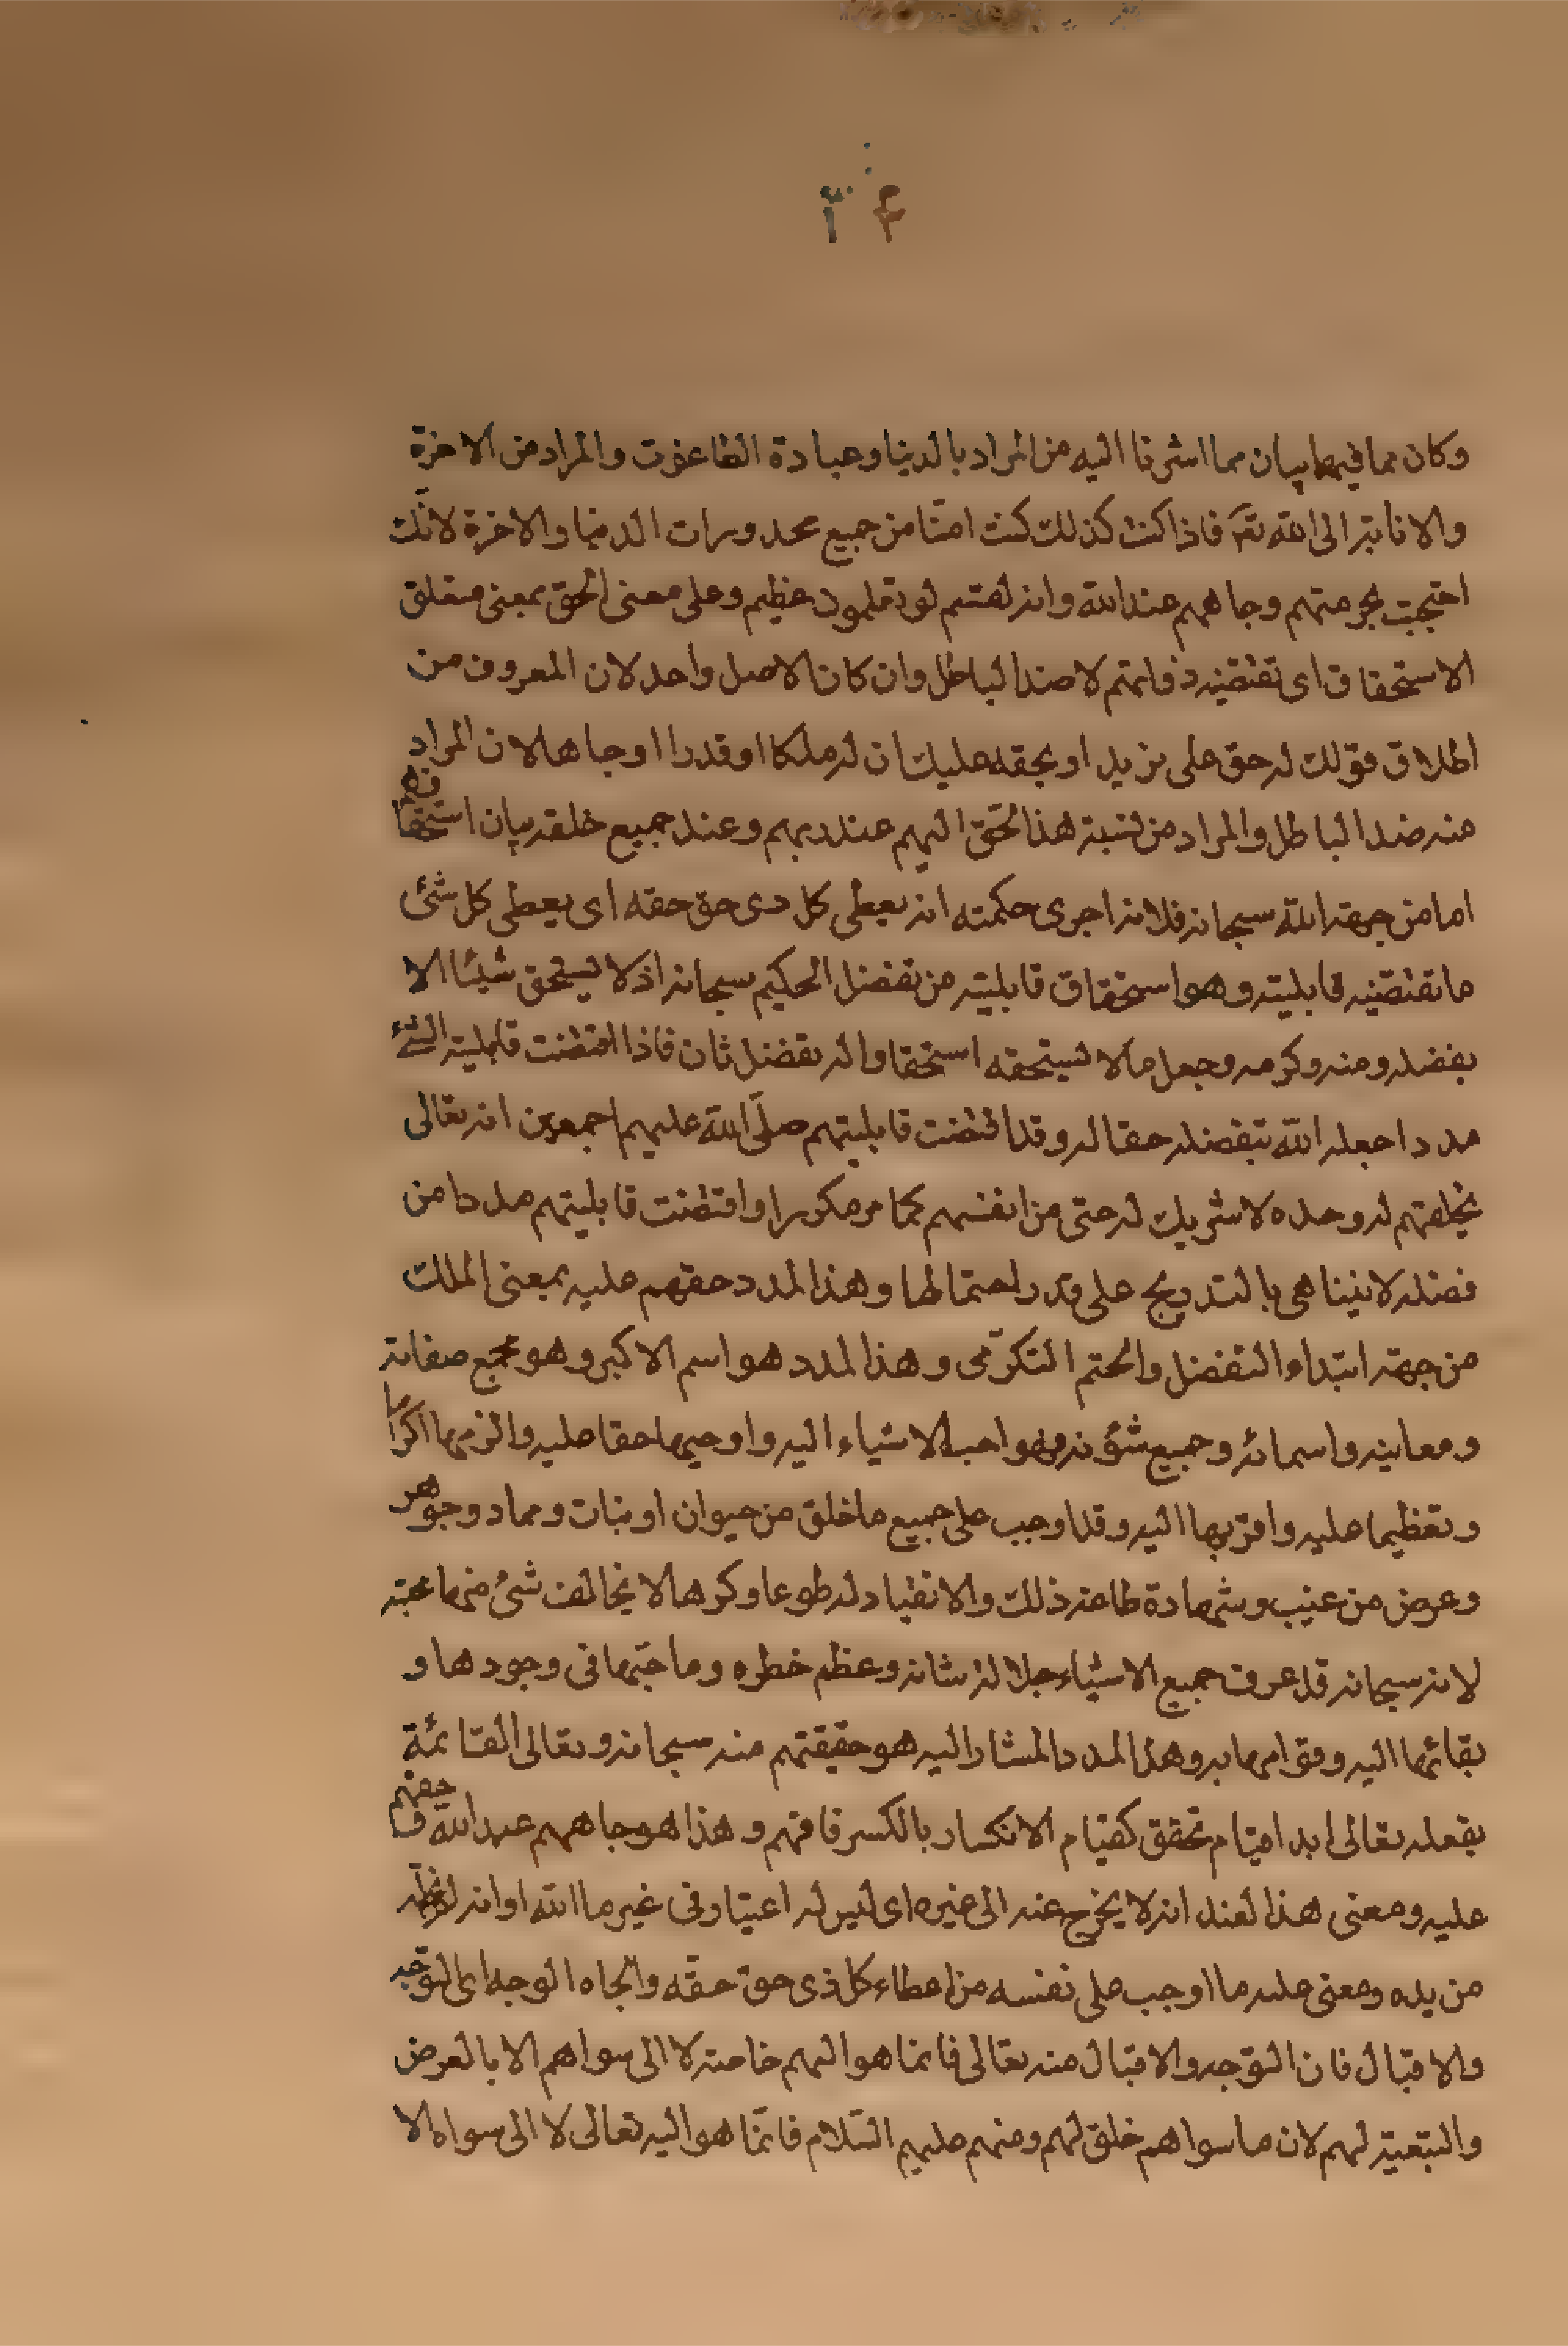 وكان مما فيهما بيان مما اشرنا اليه من المراد بالدنيا وعبادة الطاغوت والمراد من الاخرة
والانابة الى الله تع فاذا كنت كذلك كنت امنا من جميع محذورات الدنيا والاخرة لانك
احتجبت بحرمتهم وجاههم عند الله وانه لقسم لو تعلمون عظيم وعلى معنى الحق بمعنى متعلق
الاستحقاق اى تقتضيه ذواتهم لا ضد الباطل وان كان الاصل واحد لان المعروف من
اطلاق قولك له حق على زيد او بحقه عليك ان له ملكا او قدرا او جاها لان المراد
منه ضد الباطل والمراد من نسبة هذا الحق اليهم عند ربهم وعند جميع خلقه بيان استحقاقهم
اما من جهة الله سبحانه فلانه اجرى حكمته انه يعطى كل ذى حق حقه اى يعطى كل شئ
ما تقتضيه قابليته وهو استحقاق قابليته من تفضل الحكيم سبحانه اذ لا يستحق شيئا الا
بفضله ومنه وكرمه وجعل ما لا يستحقه استحقاقا له تفضل ثان فاذا اقتضت قابلية الشئ
مددا جعله الله بتفضله حقا له وقد اقتضت قابليتهم صلى الله عليهم اجمعين انه تعالى
يخلقهم له وحده لا شريك له حتى من انفسهم كما مر مكررا واقتضت قابليتهم مددا من
فضله لا يتناهى بالتدريج على قدر احتمالها وهذا المدد حقهم عليه بمعنى الملك
من جهة ابتداء التفضل والحتم التكرمى وهذا المدد هو اسم الاكبر وهو مجمع صفاته
ومعانيه واسمائه وجميع شؤنه فهو احب الاشياء اليه واوجبها حقا عليه والزمها اكراما
وتعظيما عليه واقربها اليه وقد اوجب على جميع ما خلق من حيوان او نبات وجماد وجوهر
وعرض من غيب وشهادة طاعة ذلك والانقياد له طوعا وكرها لا يخالف شئ منها محبته
لانه سبحانه قد عرف جميع الاشياء جلالة شانه وعظم خطره وحاجتها فى وجودها و
بقائها اليه وقوامها به وهذا المدد المشار اليه هو حقيقتهم منه سبحانه وتعالى القائمة
بفعله تعالى ابدا قيام تحقق كقيام الانكسار بالكسر فافهم وهذا هو جاههم عند الله وحقهم
عليه ومعنى هذا العند انه لا يخرج عنه الى غيره اى ليس له اعتبار فى غير ما الله او انه
من يده ومعنى عليه ما اوجب على نفسه من اعطاء كل ذى حق حقه والجاه الوجه اى التوجه
والاقبال فان التوجه والاقبال منه تعالى فانما هو اليهم خاصة لا الى سواهم الا بالعرض
والتبعية لهم لان ما سواهم خلق لهم ومنهم عليهم السلام فانما هو اليه تعالى لا الى سواه الا